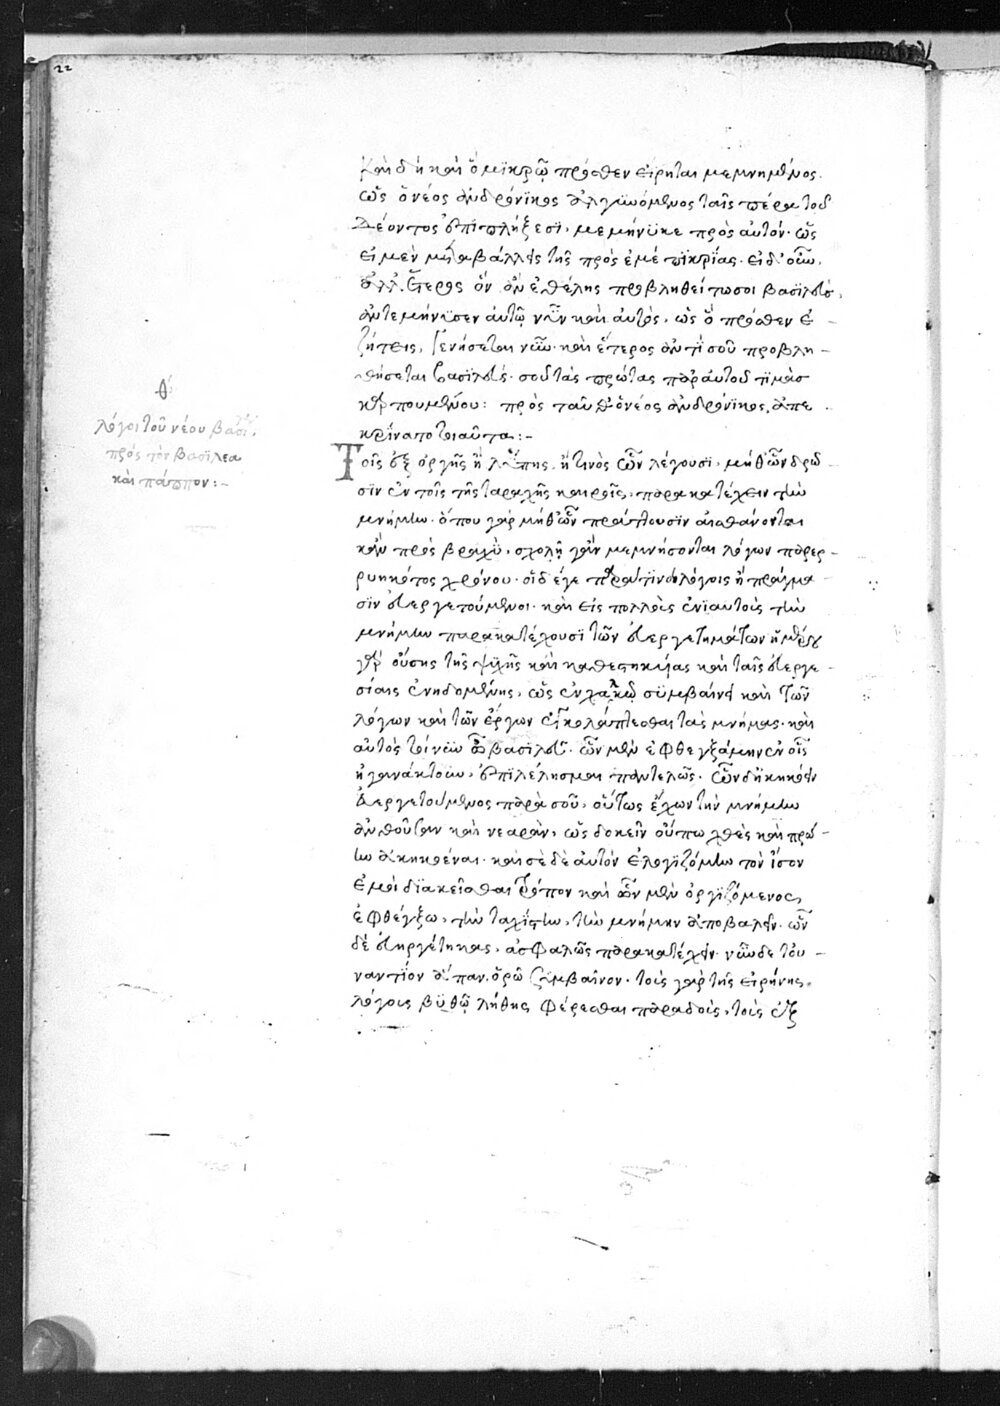 22
καὶ δὴ καὶ ὃ μϊκρῷ πρόσθεν εἴρηται μεμνημένος.
ὡς ὁ νέος ἀνδρόνϊκος ἀλγϋνόμενος ταῖς πέρα τοῦ
δέοντος ἐπιπλήξεσϊ, μεμήνϋκε πρὸς αὐτόν· ὡς
εἰ μὲν μεταβάλλεις τῆς πρὸς ἐμέ πϊκρίας· εἰ δ' οὖν,
ἀλλ' ἕτερος ὃν ἂν ἐθέλης προβληθείτω σοι βασϊλεύς,
ἀντεμήνϋσεν αὐτῷ νῦν καὶ αὐτὸς, ὡς ὃ πρόσθεν ἐ-
ζήτεις, γενήσεται νῦν· καὶ ἕτερος ἀντὶ σοῦ προβλη-
θήσεται βασϊλεύς· σοῦ τὰς πρώτας παρ' αὐτοῦ τϊμὰς
καρπουμένου: πρὸς ταῦθ' ὁ νέος ἀνδρόνϊκος, ἀπε
κρίνατο τοιαῦτα:-
θ'
λόγοι τοῦ νέου βασι
πρὸς τὸν βασϊλέα
καὶ πάππον:-
Τοῖς ἐξ ὀργῆς ἢ λύπης, ἤ τινὸς ὧν λέγουσϊ, μηθ' ὧν δρῶ
σϊν ἐν τοῖς τῆς ταραχῆς καιροῖς, παρακατέχειν τὴν
μνήμην· ὅπου γὰρ μηθ' ὧν πράττουσϊν αἰσθάνονται
κἂν πρὸς βραχὺ, σχολῇ γ' ἂν μεμνήσονται λόγων παρερ-
ρυηκότος χρόνου· οἱ δέ γε παρά τϊνος λόγοις ἢ πράγμα
σϊν εὐεργετούμενοι· καὶ εἰς πολλοὺς ἐνϊαυτοὺς τὴν
μνήμην παρακατέχουσϊ τῶν εὐεργετημάτων
γὰρ οὔσης τῆς ψϋχῆς καὶ καθεστηκυίας καὶ ταῖς εὐεργε
σίαις ἐνηδομένης, ὡς ἐν χαλκῷ σϋμβαίνει καὶ τῶν
λόγων καὶ τῶν ἔργων ἐγκολάπτεσθαι τὰς μνήμας· καὶ
αὐτὸς τοίνϋν ὦ βασϊλεῦ· ὧν μὲν ἐφθεγξάμην ἐν οἷς
ἠγανάκτουν, ἐπϊλέλησμαι παντελῶς· ὧν δ' ἤκηκόειν
εὐεργετούμενος παρὰ σοῦ, οὕτως ἔχων τὴν μνήμην
ἀνθοῦσαν καὶ νεαρὰν, ὡς δοκεῖν οὔπω χθὲς καὶ πρώ-
ην ἀκηκοέναι· καὶ σὲ δὲ αὐτὸν ἐλογϊζόμην τὸν ἴσον
ἐμοὶ δϊακεῖσθαι τρόπον καὶ ὧν μὲν ὀργϊζόμενος,
ἐφθέγξω, τὴν ταχίστην, τὴν μνήμην ἀποβαλεῖν· ὧν
δὲ εὐηργέτηκας, ἀσφαλῶς παρακατέχειν· νῦν δε τοὐ-
ναντϊον ἅπαν, ὁρῶ ξυμβαῖνον· τοὺς γὰρ τῆς εἰρήνης,
λόγους βϋθῷ λήθης φέρεσθαι παραδοὺς, τοὺς ἐξ